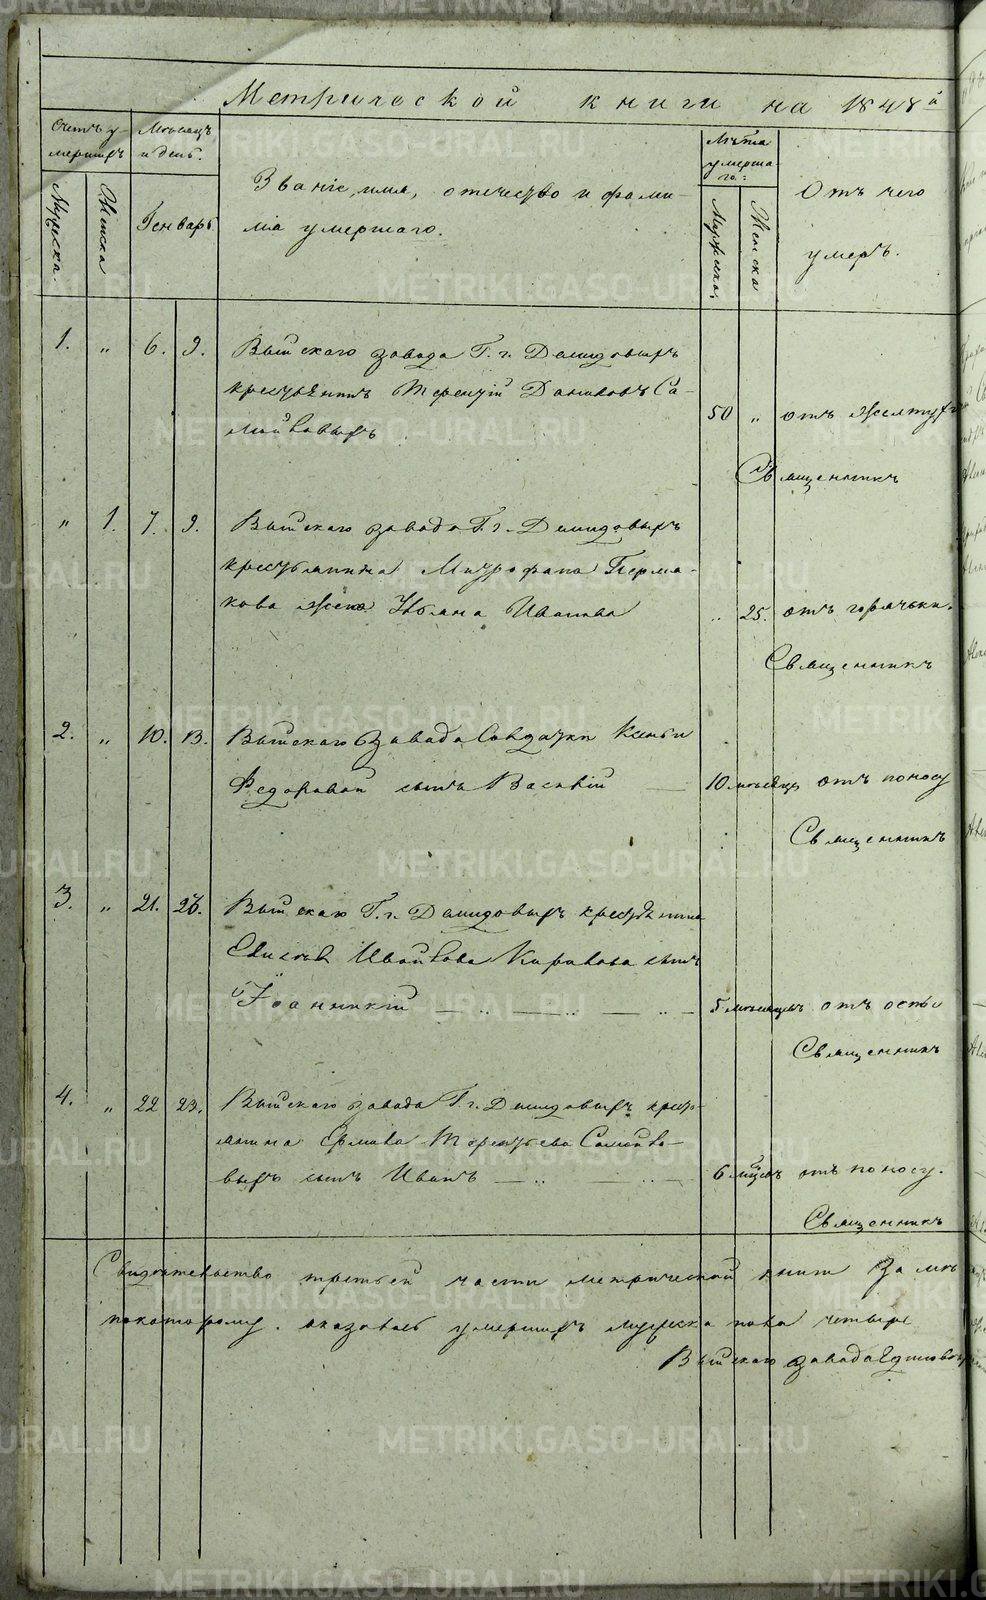 Метрической книги на 1848й
Счетъ у-
мершихъ
Мѣсяцъ
и день.
Лѣта
умерша
го:
Мужеска.
Женска
Генварь.
Званіе, имя, отечество и фами-
ліа умершаго.
Мужеска
Женска
Отъ чего
умеръ.
1. „ 6. 9. Выйскаго завода Г. г. Демидовыхъ
крестьянинъ Терентій Даниловъ Са-
мойловыхъ
50 „ отъ желтухи
Священникъ
„ 1. 7. 9. Выйскаго завода Г. г. Демидовыхъ
крестьянина Митрофана Перма-
кова жена Ульяна Иванова „ 25. отъ горячьки.
Священникъ
2. „ 10. 13. Выйскаго завода Солдатки
Федоровой сынъ Василій 10 мѣсяцъ отъ поносу
Священникъ
3. „ 21. 26. Выйскаго Г. г. Демидовыхъ крестьянина
Иванова сынъ
Іоанникій 5 мѣсяцевъ отъ оспы
Священникъ
4. „ 22 23. Выйскаго завода Г. г. Демидовыхъ кресть-
янина Ермила Терентьева Самойло-
выхъ сынъ Иванъ 6 мѣсцъ отъ поносу.
Священникъ
Свидѣтельство третьей части метрической книги За мѣ
покоторому оказалось умершихъ мужеска пола четыре
Выйскаго завода Единовѣр
METRIKI.GASO-URAL.RU